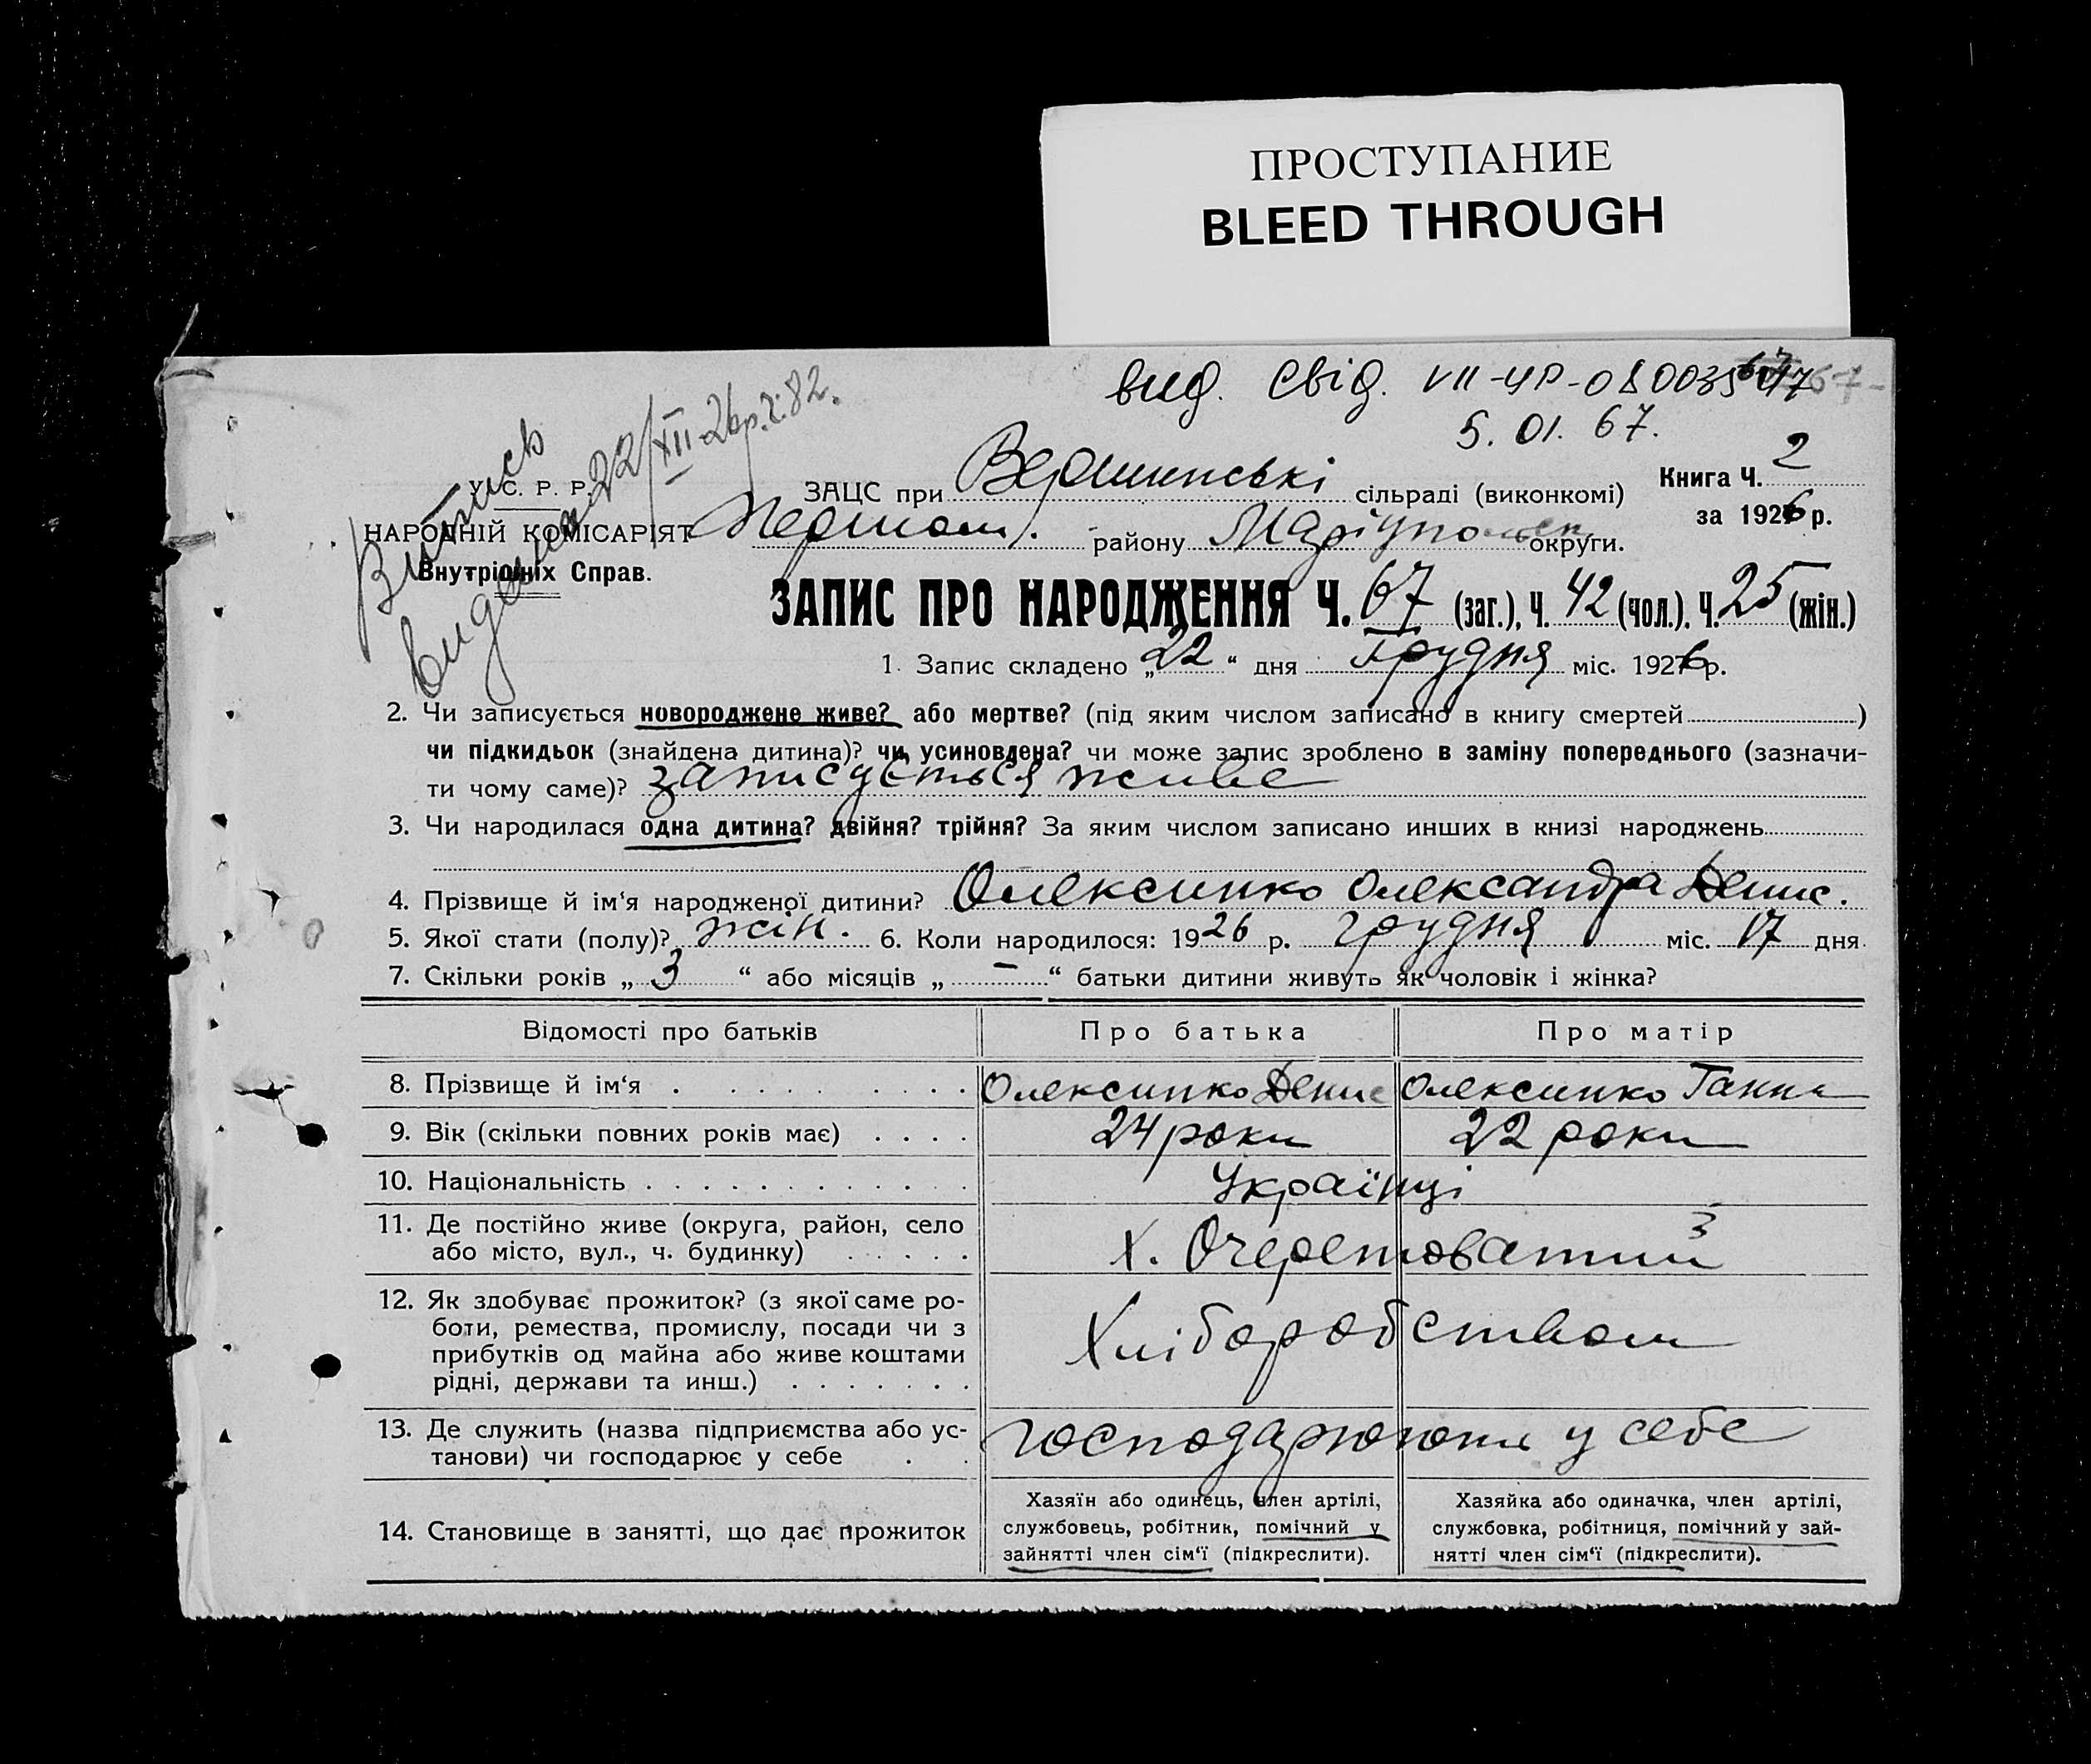 ПРОСТУПАНИЕ
BLEED THROUGH
вид. Свід. VII-ЧР-
5. 01. 67.
Витпись
видана 22/XII-26р. 82.
У. С. Р. Р.
НАРОДНІЙ КОМІСАРІЯТ
Внутрішніх Справ.
ЗАЦС при Вершинські сільраді (виконкомі)
Книга Ч. 2
за 1926 р.
району Маріупольськ округи.
ЗАПИС ПРО НАРОДЖЕННЯ Ч. 67 (заг.), Ч. 42 (чол.), Ч. 25 (жін.)
1. Запис складено „ 22 “ дня Грудня міс. 1926 р.
2. Чи записується новороджене живе? або мертве? (під яким числом записано в книгу смертей )
чи підкидьок (знайдена дитина)? чи усиновлена? чи може запис зроблено в заміну попереднього (зазначи-
ти чому саме)? записується живе
3. Чи народилася одна дитина? двійня? трійня? За яким числом записано инших в книзі народжень
4. Прізвище й ім‘я народженої дитини? Олексинко Олександра Денис.
5. Якої стати (полу)? жін. 6. Коли народилося: 1926 р. грудня міс. 17 дня
7. Скільки років „ 3 “ або місяців „ — “ батьки дитини живуть як чоловік і жінка?
Відомості про батьків Про батька Про матір
8. Прізвище й ім‘я . . . . . . . . Олексинко Денис Олексинко Ганна
9. Вік (скільки повних років має) . . . . 24 роки 22 роки
10. Національність . . . . . . . . . . . . Українці
11. Де постійно живе (округа, район, село
або місто, вул., ч. будинку) . . . . . х. Очеретоватий
12. Як здобуває прожиток? (з якої саме ро-
боти, ремества, промислу, посади чи з
прибутків од майна або живе коштами
рідні, держави та инш.) . . . . . . .
Хліборобством
13. Де служить (назва підприємства або ус-
танови) чи господарює у себе . .
господарюють у себе
14. Становище в занятті, що дає прожиток
Хазяїн або одинець, член артілі,
службовець, робітник, помічний у
зайнятті член сім‘ї (підкреслити).
Хазяйка або одиначка, член артілі,
службовка, робітниця, помічний у зай-
нятті член сім‘ї (підкреслити).